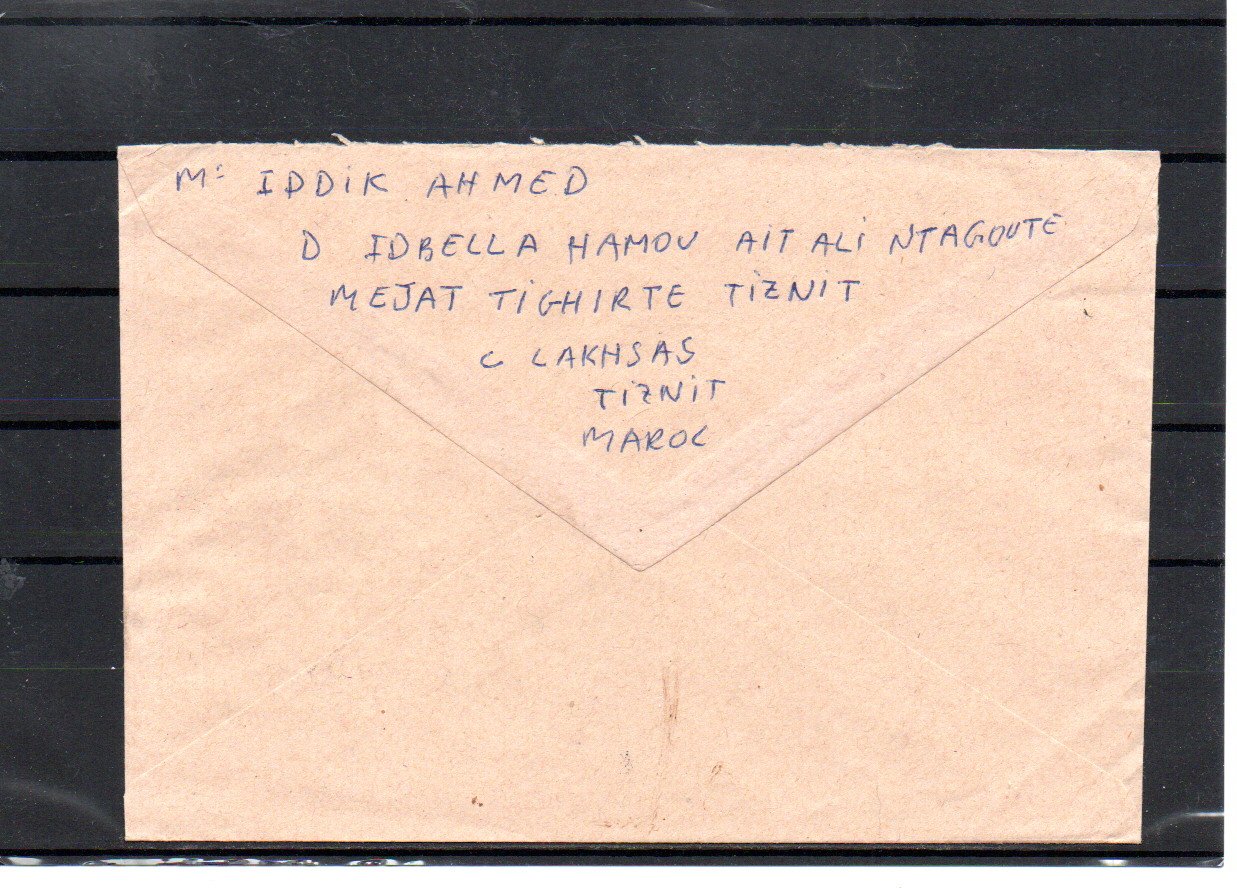 Mr IDDIK AHMED
D IDBELLA HAMOU AIT ALI NTAGOUTE
MEJAT TIGHIRTE TIZNIT
C LAKHSAS
TIZNIT
MAROC